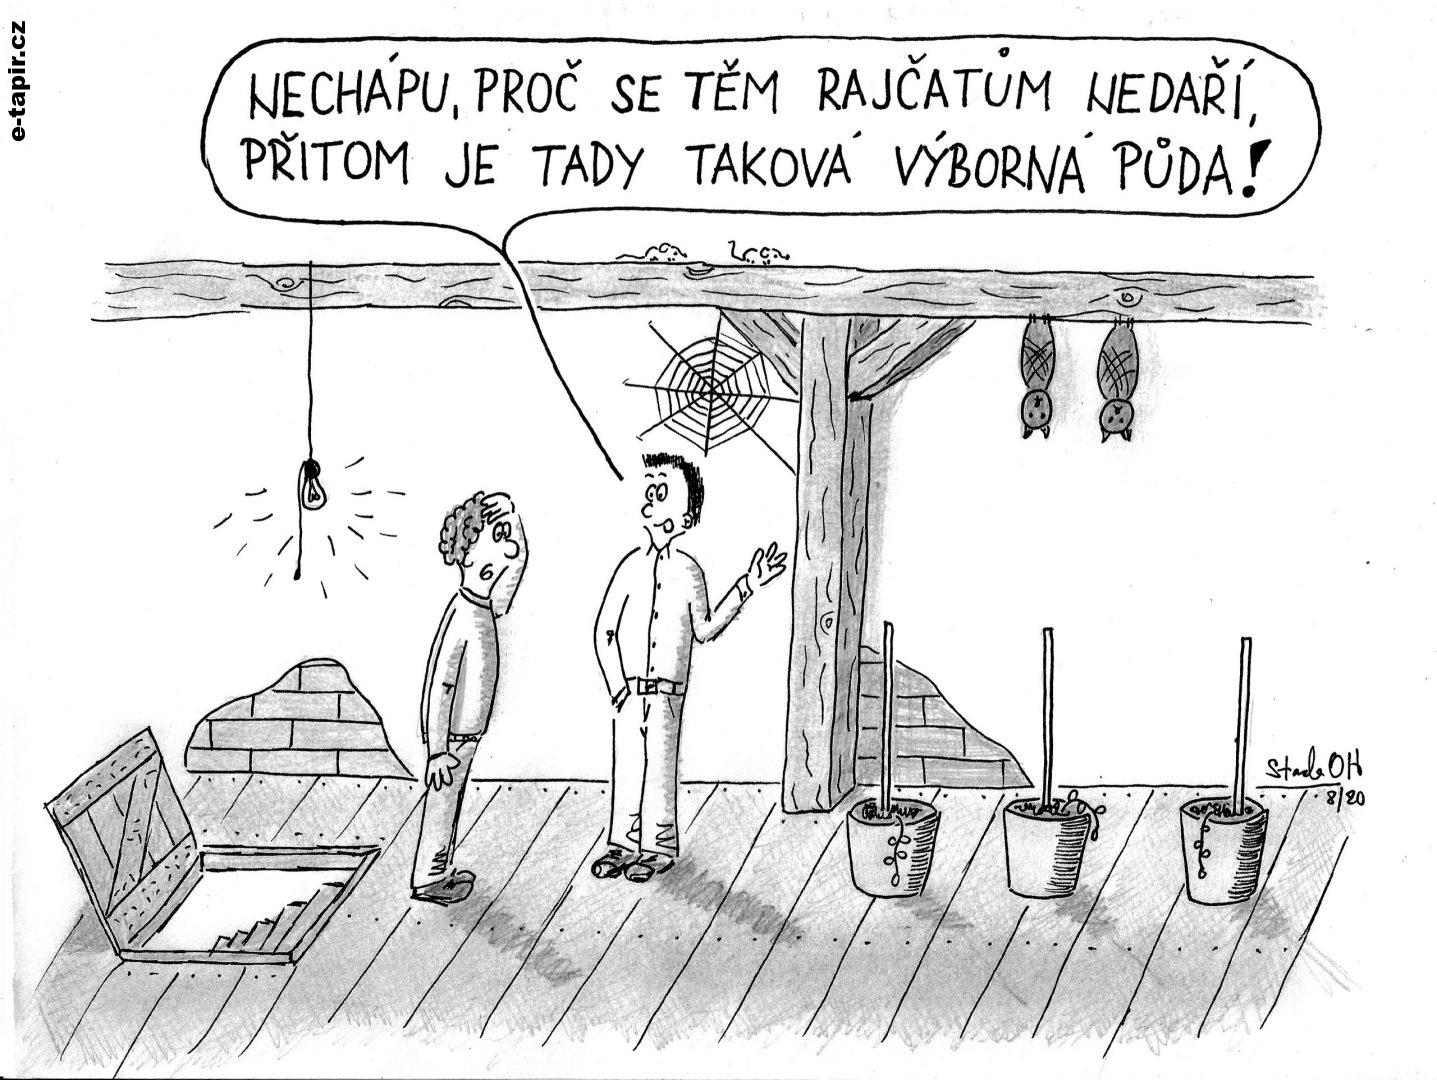 e-tapir.cz
NECHÁPU, PROČ SE TĚM RAJČATŮM NEDAŘÍ,
PŘITOM JE TADY TAKOVÁ VÝBORNÁ PŮDA!
8/20